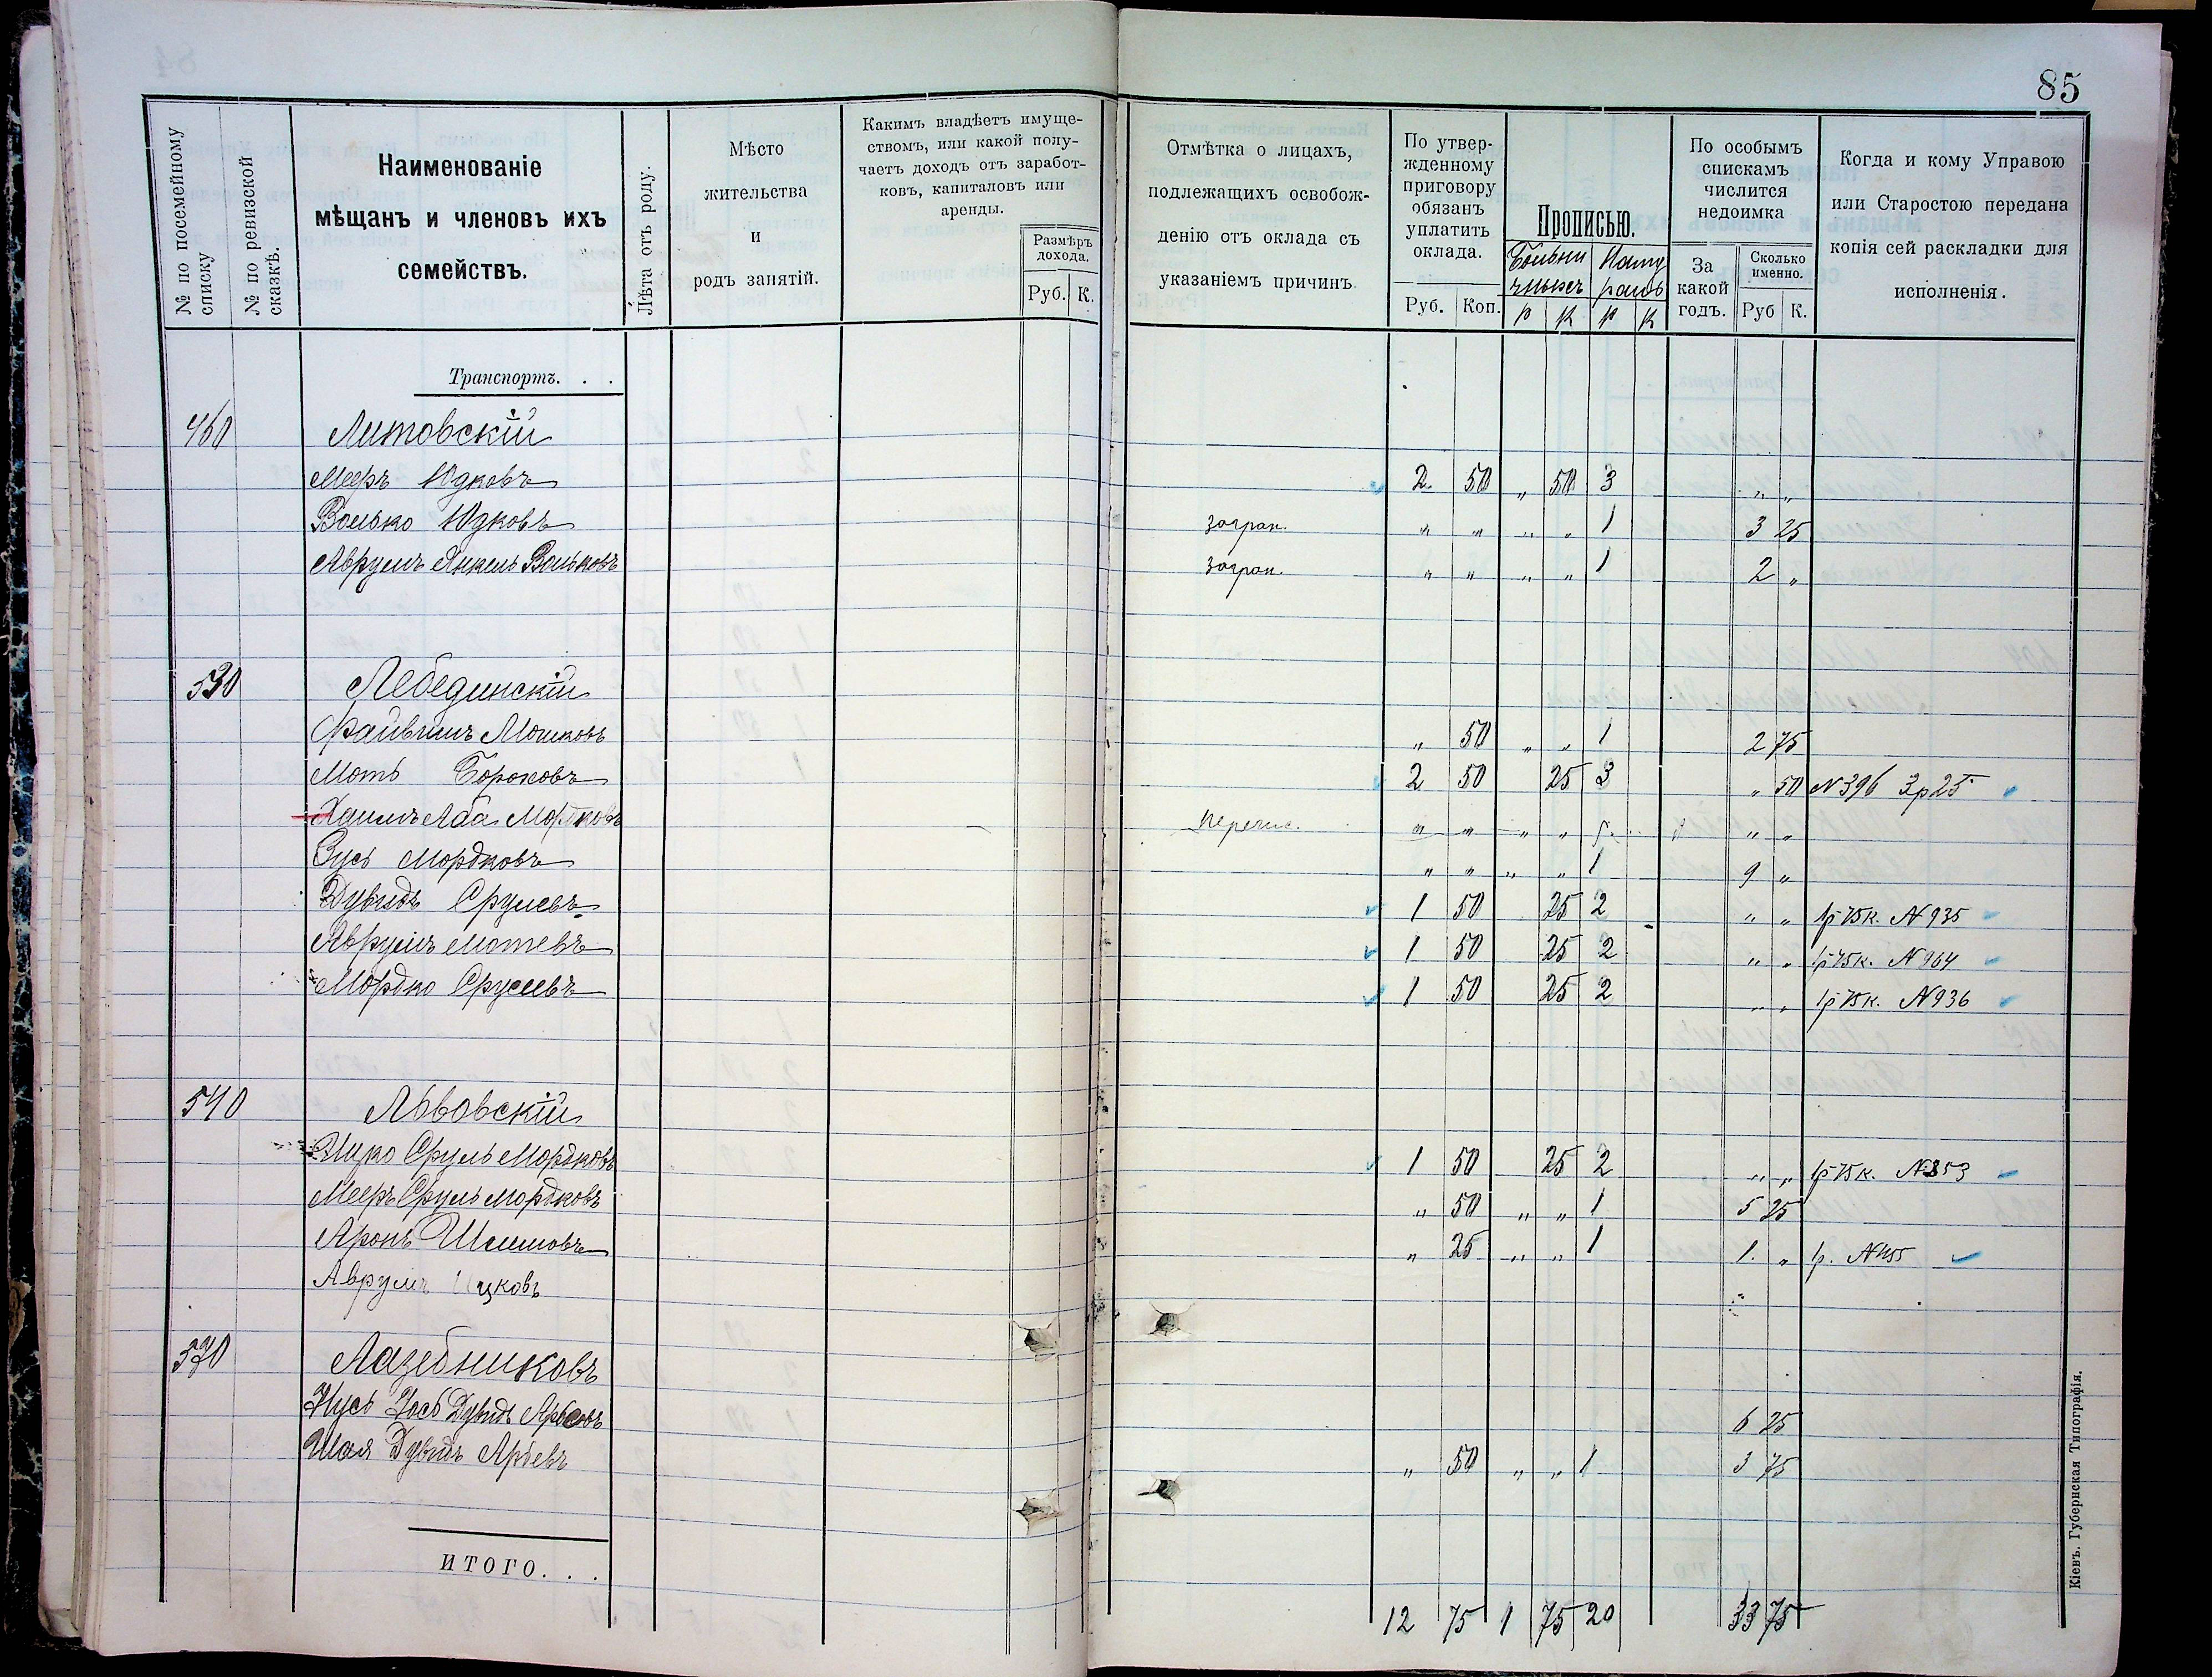 85
№ по посемейному списку
№ по ревизской сказкѣ.
Наименованіе
мѣщанъ и членовъ ихъ
семействъ.
Лѣта отъ роду.
Мѣсто
жительства
и
родъ занятій.
Какимъ владѣетъ имуще-
ствомъ, или какой полу-
чаетъ доходъ отъ заработ-
ковъ, капиталовъ или
аренды.
Размѣръ
дохода.
Руб. К.
Отмѣтка о лицахъ,
подлежащихъ освобож-
денію отъ оклада съ
указаніемъ причинъ.
По утвер-
жденному
приговору
обязанъ
уплатить
оклада.
Руб. Коп.
Прописью.
Р К Р К
По особымъ
спискамъ
числится
недоимка
За
какой
годъ.
Сколько
именно.
Руб К.
Когда и кому Управою
или Старостою передана
копія сей раскладки для
исполненія.
Транспортъ. . .
460 Литовскій
Мееръ Юдковъ 2 50 „ 50 3 „ „
Волько Юдковъ загран. „ „ „ „ 1 3 25
Аврумъ Янкель Вольковъ загран. „ „ „ „ 1 2 „
530 Лебединскій
Файвишъ Мошковъ „ 50 „ „ 1 2 75
Моть Борковъ 2 50 25 3 „ 50 N 396 3р 25
Хаимъ Аба Мордковъ перечис. „ „ „ „ „ „
Зусь Мордковъ „ „ „ „ 1 9 „
Дувидъ Срулевъ 1 50 25 2 „ „ 1р 75к. N 935
Аврумъ Мотевъ 1 50 25 2 „ „ 1р 75к. N 964
Мордко Срулевъ 1 50 25 2 „ „ 1р 75к. N 936
540 Львовскій
Ицко Сруль Мордковъ 1 50 25 2 „ „ 1р 75к. N 853
Мееръ Сруль Мордковъ „ 50 „ „ 1 5 25
Аронъ „ 25 „ „ 1 1. „ 1р.
Аврумъ Ицковъ
Лазебниковъ
Нусь Іось Дувидъ 6 25
Шая Дувидъ Арьевъ „ 50 „ „ 1 3 75
ИТОГО. . .
12 75 1 75 20 33 75
Кіевъ. Губернская Типографія.